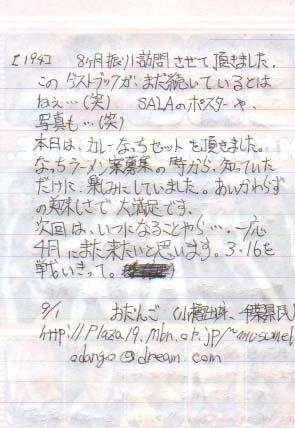 [194] 8ヶ月振り訪問させて頂きました。
このゲストブックが、まだ続いているとは
ねぇ…(笑) SALAのポスターや、
写真も…(笑)
本日は、カレーなっちセットを頂きました。
なっちラーメン案募集の時から、知っていた
だけに、楽しみにしていました。あいかわらず
の美味しさで大満足です。
次回は、いつになることやら…。一応
4月にまた来たいと思います。3・16を
戦いきって。
9/1 おだんご (山梨出身、千葉県民)
http://plaza19.mbn.or.jp/~musumel
odango@dream.com